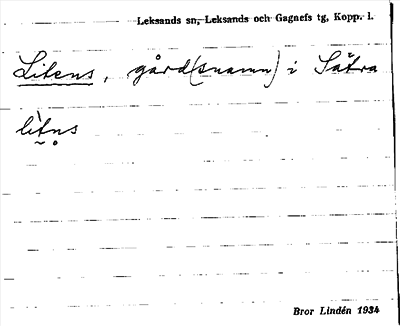 Leksands sn, Leksands och Gagnefs tg, Kopp. l.
Litens, gård(snamn) i Sätra
lìtn̥s
Bror Lindén 1934